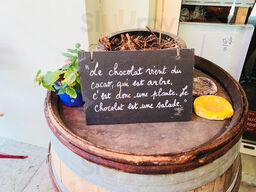 "Le chocolat vient du
cacao, qui est arbre,
c'est donc une plante. Le
chocolat est une salade."